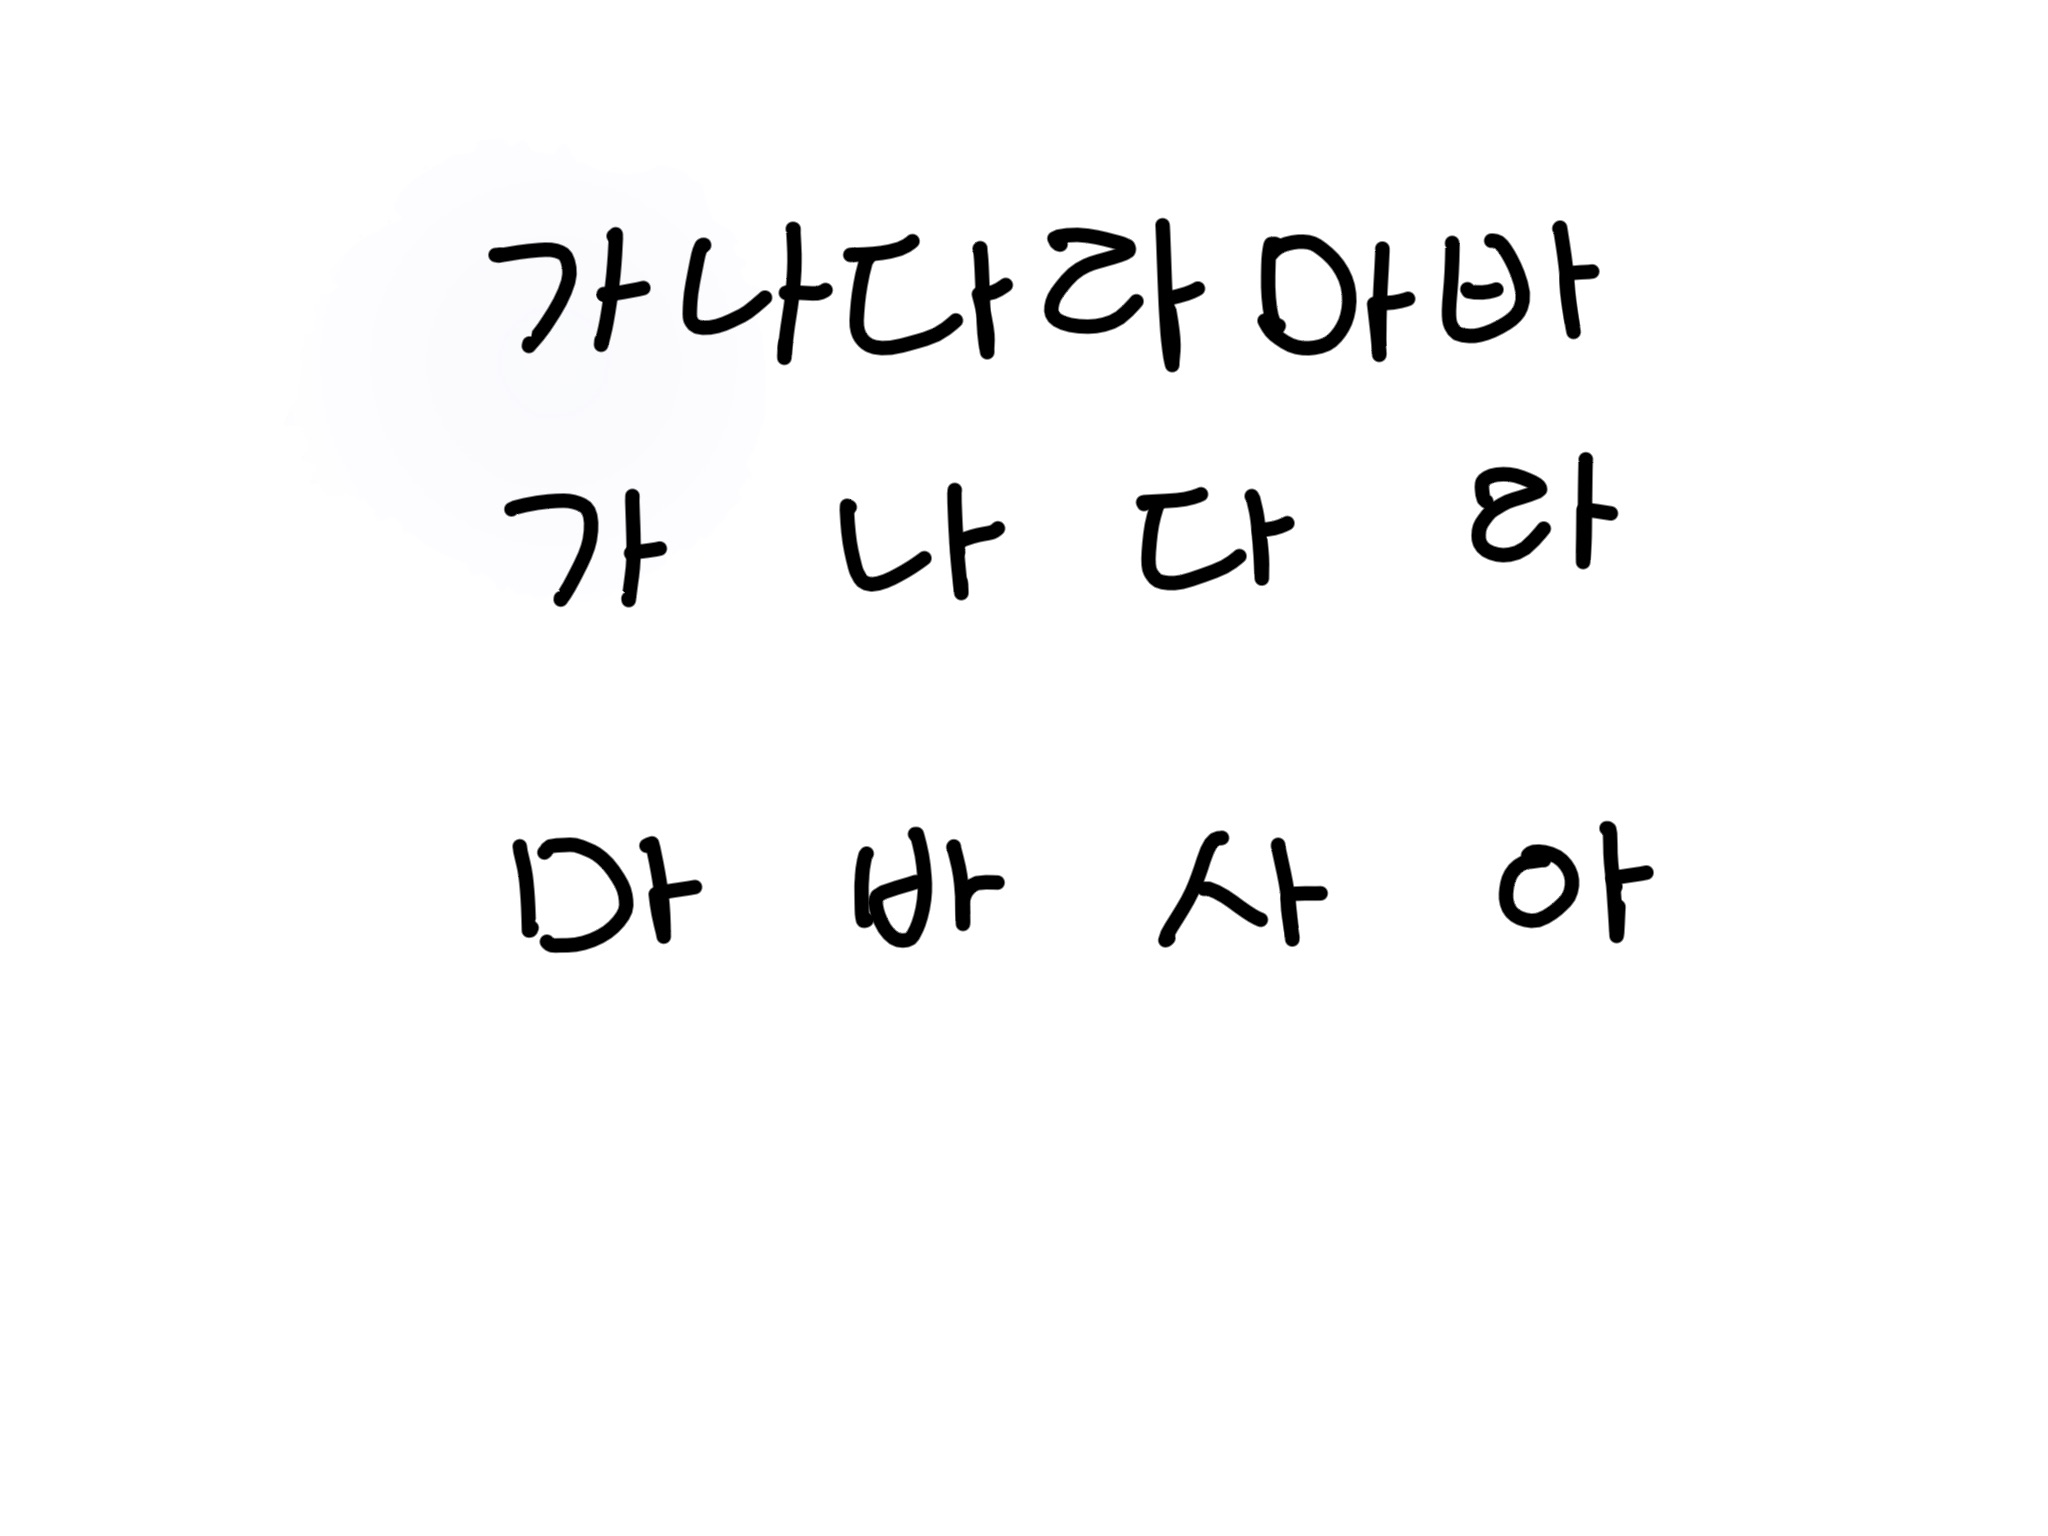 가나다라마바
가 나 다 라
마 바 사 아